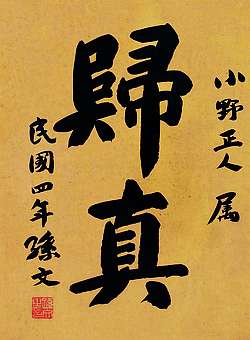 小野正人 属
歸真
民國四年 孫文